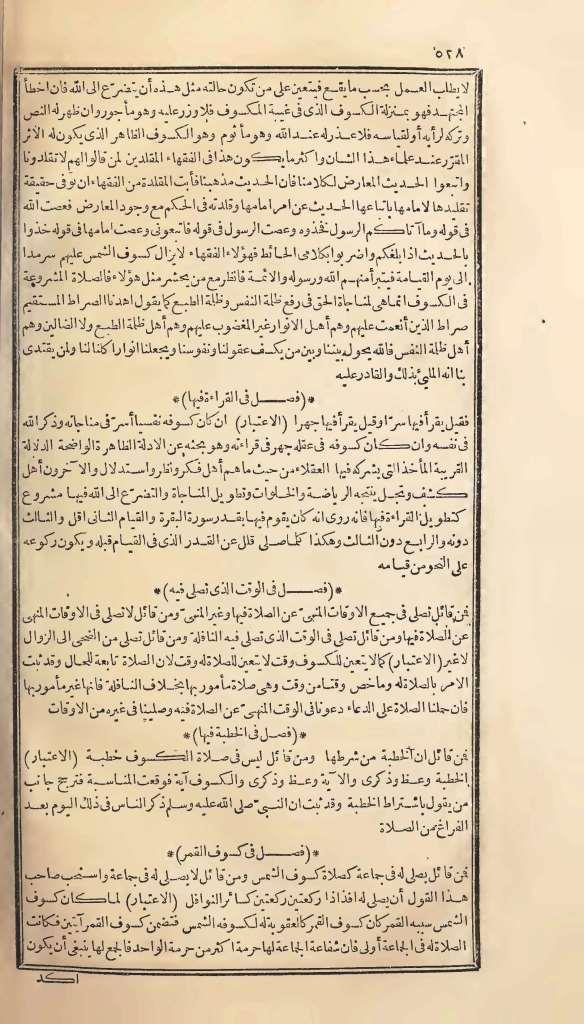 ٥٢٨
لا يطلب العمل بحسب ما يقع فيتعين على من تكون حالته مثل هذه أن يتضرع الى الله فان اخطأ
المجتهد فهو بمنزلة الكسوف الذى فى غيبة المكسوف فلا وزر عليه وهو مأجور وان ظهر له النص
وتركه لرأيه أو لقياسه فلا عذر له عند الله وهو مأثوم وهو الكسوف الظاهر الذى يكون له الاثر
المقرر عند علماء هذا الشان واكثر ما يكون هذا فى الفقهاء المقلدين لمن قالوا لهم لا تقلدونا
واتبعوا الحديث المعارض لكلامنا فان الحديث مذهبنا فأبت المقلدة من الفقهاء ان توفى حقيقة
تقليدها لامامها باتباعها الحديث عن امر امامها وقلدته فى الحكم مع وجود المعارض فعصت الله
فى قوله وما آتاكم الرسول فخذوه وعصت الرسول فى قوله فاتبعونى وعصت امامها فى قوله خذوا
بالحديث اذا بلغكم واضربوا بكلامى الحائط فهؤلاء الفقهاء لا يزال كسوف الشمس عليهم سرمدا
الى يوم القيامة فيتبرأ منهم الله ورسوله والائمة فانظر مع من يحشر مثل هؤلاء فالصلاة المشروعة
فى الكسوف انما هى لمناجاة الحق فى رفع ظلمة النفس وظلمة الطبع كما يقول اهدنا الصراط المستقيم
صراط الذين أنعمت عليهم وهم أهل الانوار غير المغضوب عليهم وهم أهل ظلمة الطبع ولا الضالين وهم
أهل ظلمة النفس فالله يحول بيننا وبين من يكسف عقولنا ونفوسنا ويجعلنا انوارا كلنا لنا ولمن يقتدى
بنا انه الملئ بذلك والقادر عليه
*(فصل فى القراءة فيها)*
فقيل يقرأ فيها سرا وقيل يقرأ فيها جهرا (الاعتبار) ان كان كسوفه نفسيا أسر فى مناجاته وذكر الله
فى نفسه وان كان كسوفه فى عقله جهر فى قراءته وهو بحثه عن الادلة الظاهرة الواضحة الدلالة
القريبة المأخذ التى يشركه فيها العقلاء من حيث ما هم أهل فكر ونظر واستدلال والآخرون أهل
كشف وتجل ينتجه الرياضة والخلوات وتطويل المناجاة والتضرع الى الله فيها مشروع
كتطويل القراءة فيها فانه روى انه كان يقوم فيها بقدر سورة البقرة والقيام الثانى اقل والثالث
دونه والرابع دون الثالث وهكذا كلما صلى قلل عن القدر الذى فى القيام قبله ويكون ركوعه
على النحو من قيامه
*(فصل فى الوقت الذى تصلى فيه)*
فمن قائل تصلى فى جميع الاوقات المنهى عن الصلاة فيها وغير المنهى ومن قائل لا تصلى فى الاوقات المنهى
عن الصلاة فيها ومن قائل تصلى فى الوقت الذى تصلى فيه النافلة ومن قائل تصلى من الضحى الى الزوال
لا غير (الاعتبار) كما لا يتعين للكسوف وقت لا يتعين للصلاة له وقت لان الصلاة تابعة للحال وقد ثبت
الامر بالصلاة له وما خص وقتا من وقت وهى صلاة مأمور بها بخلاف النافلة فانها غير مأمور بها
فان حملنا الصلاة على الدعاء دعونا فى الوقت المنهى عن الصلاة فيه وصلينا فى غيره من الاوقات
*(فصل فى الخطبة فيها)*
فمن قائل ان الخطبة من شرطها ومن قائل ليس فى صلاة الكسوف خطبة (الاعتبار)
الخطبة وعظ وذكرى والآية وعظ وذكرى والكسوف آية فوقعت المناسبة فترجح جانب
من يقول باشتراط الخطبة وقد ثبت ان النبى صلى الله عليه وسلم ذكر الناس فى ذلك اليوم بعد
الفراغ من الصلاة
*(فصل فى كسوف القمر)*
فمن قائل يصلى له فى جماعة كصلاة كسوف الشمس ومن قائل لا يصلى له فى جماعة واستحب صاحب
هذا القول أن يصلى له افذاذا ركعتين ركعتين كسائر النوافل (الاعتبار) لما كان كسوف
الشمس سببه القمر كان كسوف القمر كالعقوبة له لكسوفه الشمس فتضمن كسوف القمر آيتين فكانت
الصلاة له فى الجماعة أولى فان شفاعة الجماعة لها حرمة اكثر من حرمة الواحد فالجمع لها ينبغى أن يكون
اكد